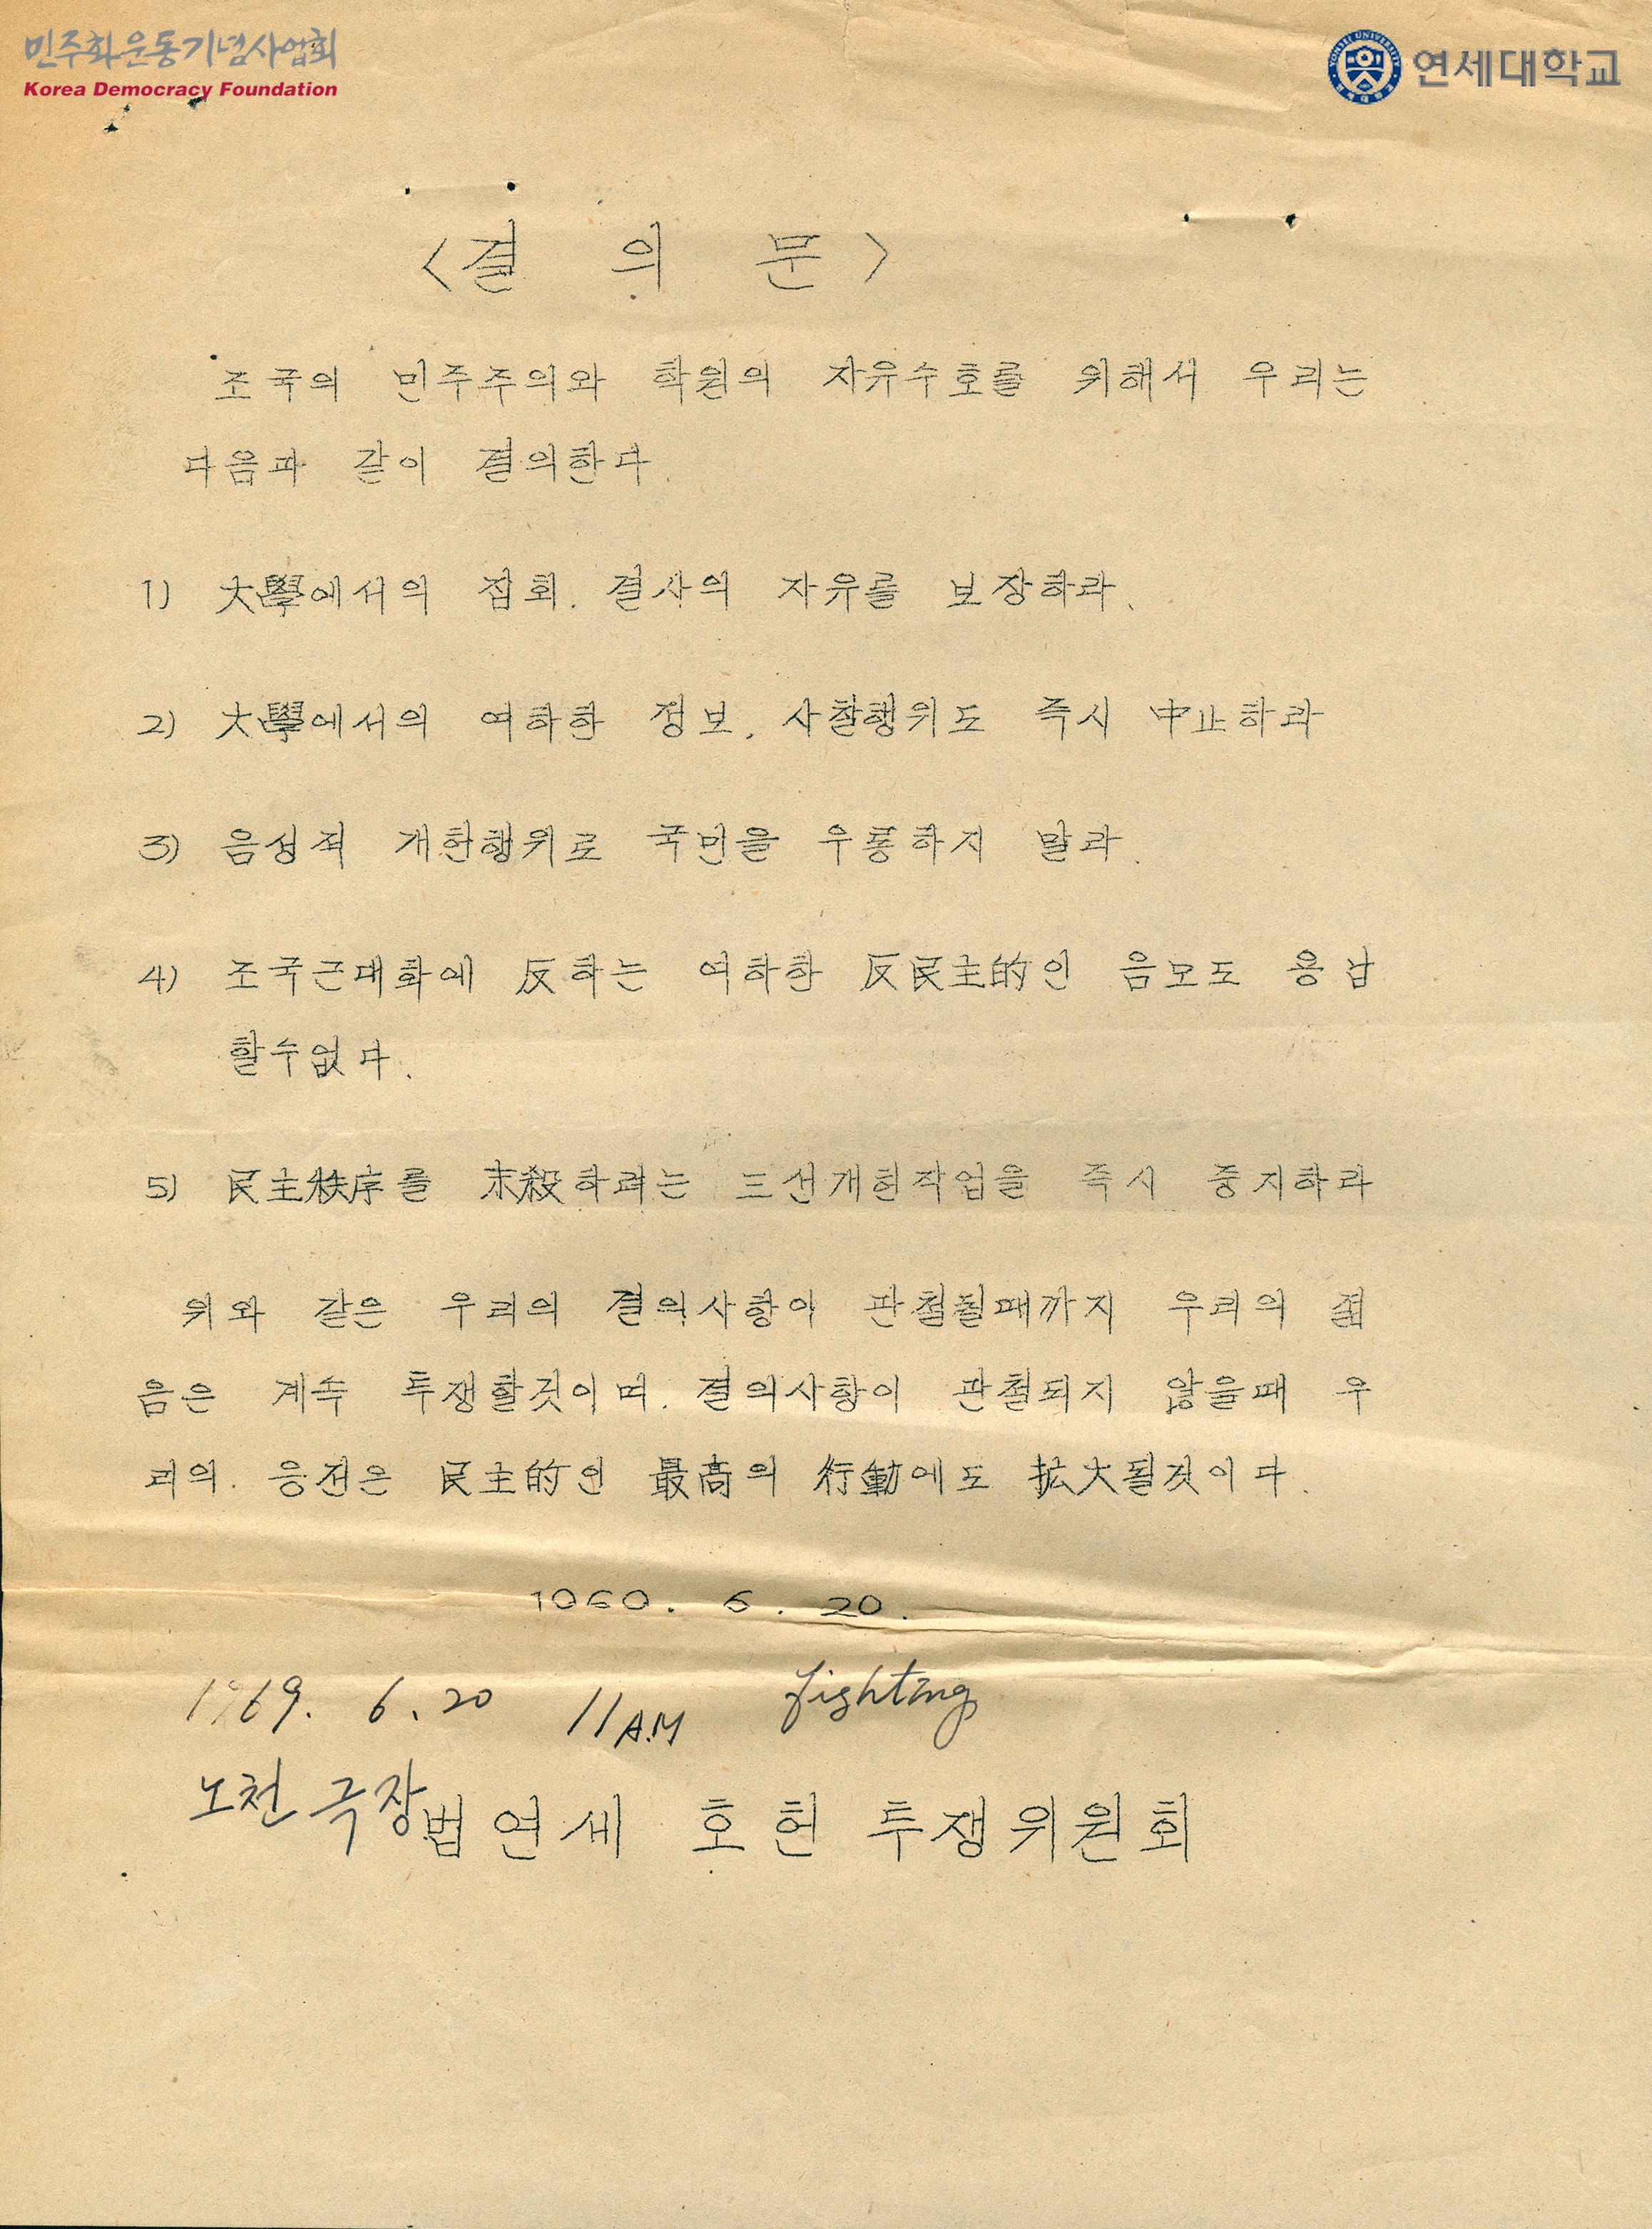 민주화운동기념사업회
Korea Democracy Foundation
연세대학교
<결 의 문>
조국의 민주주의와 학원의 자유수호를 위해서 우리는
다음과 같이 결의한다.
1) 大學에서의 집회. 결사의 자유를 보장하라.
2) 大學에서의 여하한 정보. 사찰행위도 즉시 中止하라
3) 음성적 개헌행위로 국민을 우롱하지 말라.
4) 조국근대화에 反하는 여하한 反民主的인 음모도 용납
할수없다.
5) 民主秩序를 末殺하려는 三선개헌작업을 즉시 중지하라
위와 같은 우리의 결의사항이 관철될때까지 우리의 젊
음은 계속 투쟁할것이며. 결의사항이 관철되지 않을때 우
리의 응전은 民主的인 最高의 行動에도 拡大될것이다.
1969. 6. 20.
1969. 6. 20 11 A.M fighting
노천극장
범연세 호헌 투쟁위원회